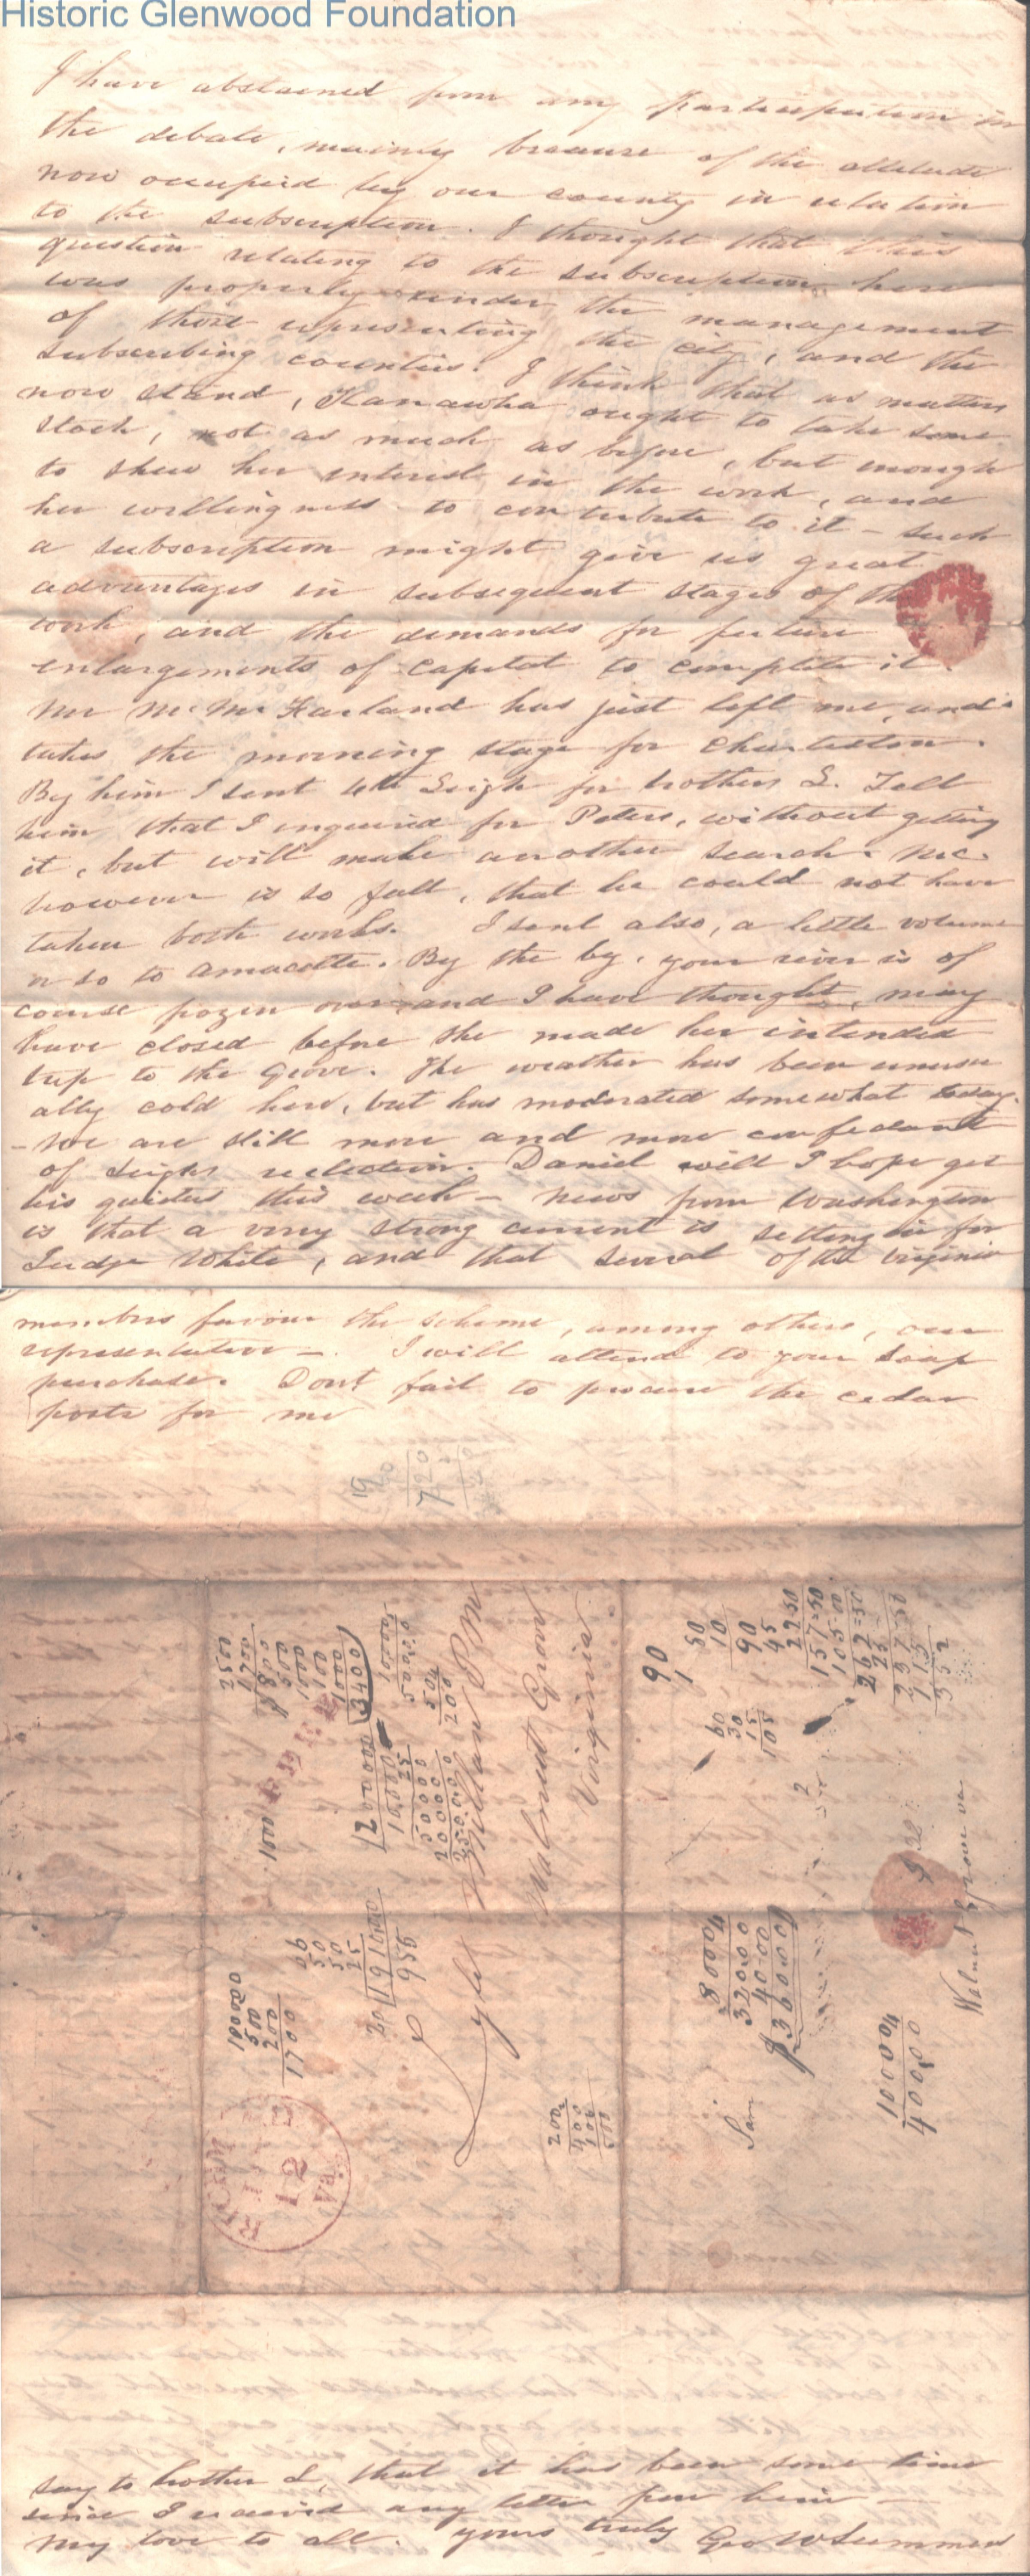 Historic Glenwood Foundation
I have abstained from any participation in
the debate, mainly because of the attitude
now occupied by our county in relation
to the subscription. I thought that this
question relating to the subscription here
was properly under the management
of those representing the city, and the
subscribing counties. I think that as matters
now stand, Kanawha ought to take some
stock, not as much as before, but enough
to shew her interest in the work, and
her willingness to contribute to it - such
a subscription might give us great
advantages in subsequent stages of the
work, and the demands for future
enlargements of capital to complete it.
Mr McFarland has just left me, and
takes the morning stage for Charleston.
By him I sent 4th Leigh for brother L. Tell
him that I inquired for Peters, without getting
it, but will make another search. Mc.
however is so full, that he could not have
taken both works. I sent also, a little volume
or so to Amacetta. By the by, your river is of
course frozen over and I have thought, may
have closed before she made her intended
trip to the Grove. The weather has been unusu
ally cold here, but has moderated somewhat today.
- We are still more and more confident
of Leighs reelection. Daniel will I hope get
his quietus this week - News from Washington
is that a very strong current is setting in for
Judge White, and that several of the Virginia
members favour the scheme, among others, our
representative -. I will attend to your soap
purchase. Dont fail to procure the cedar
posts for me
720
FREE
RICHMOND
12
Va.
Walnut Grove
Virginia
90
1
50
10
90
45
22 50
157=50
105.00
262=50
25
60
30
15
105
2500
1000
3400
1000
10000
500
200
1700
50
50
25
20 19100
956
200
400
8000
4
32000
4000
36000
Sam
10000
4
40000
Walnut Grove va
say to brother L, that it has been some time
since I received any letter from him -
My love to all. yours truly Geo W Summers